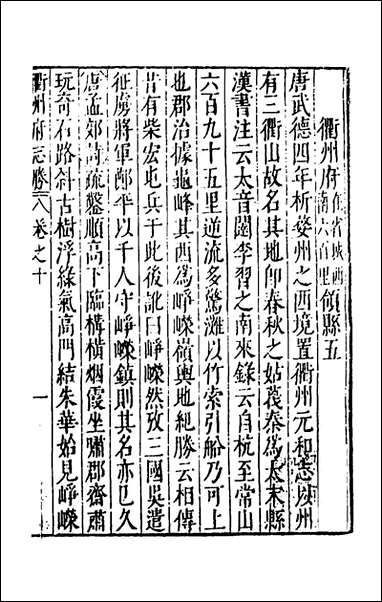 衢州府在省城西南六百里領縣五
唐武德四年析婺州之西境置衢州元和志以州
有三衢山故名其地卽春秋之姑蔑秦爲太末縣
漢書注云太音闥李習之南來錄云自杭至常山
六百九十五里逆流多驚灘以竹索引船乃可上
也郡治據龜峰其西爲崢嶸嶺輿地紀勝云相傳
昔有柴宏屯兵于此後訛曰崢嶸然攷三國吳遣
征虜將軍鄭平以千人守崢嶸鎮則其名亦已久
唐孟郊詩疏鑿順高下臨構橫烟霞坐嘯郡齋肅
玩奇石路斜古樹浮綠氣高門結朱華始見崢嶸
衢州府志勝 卷之十 一